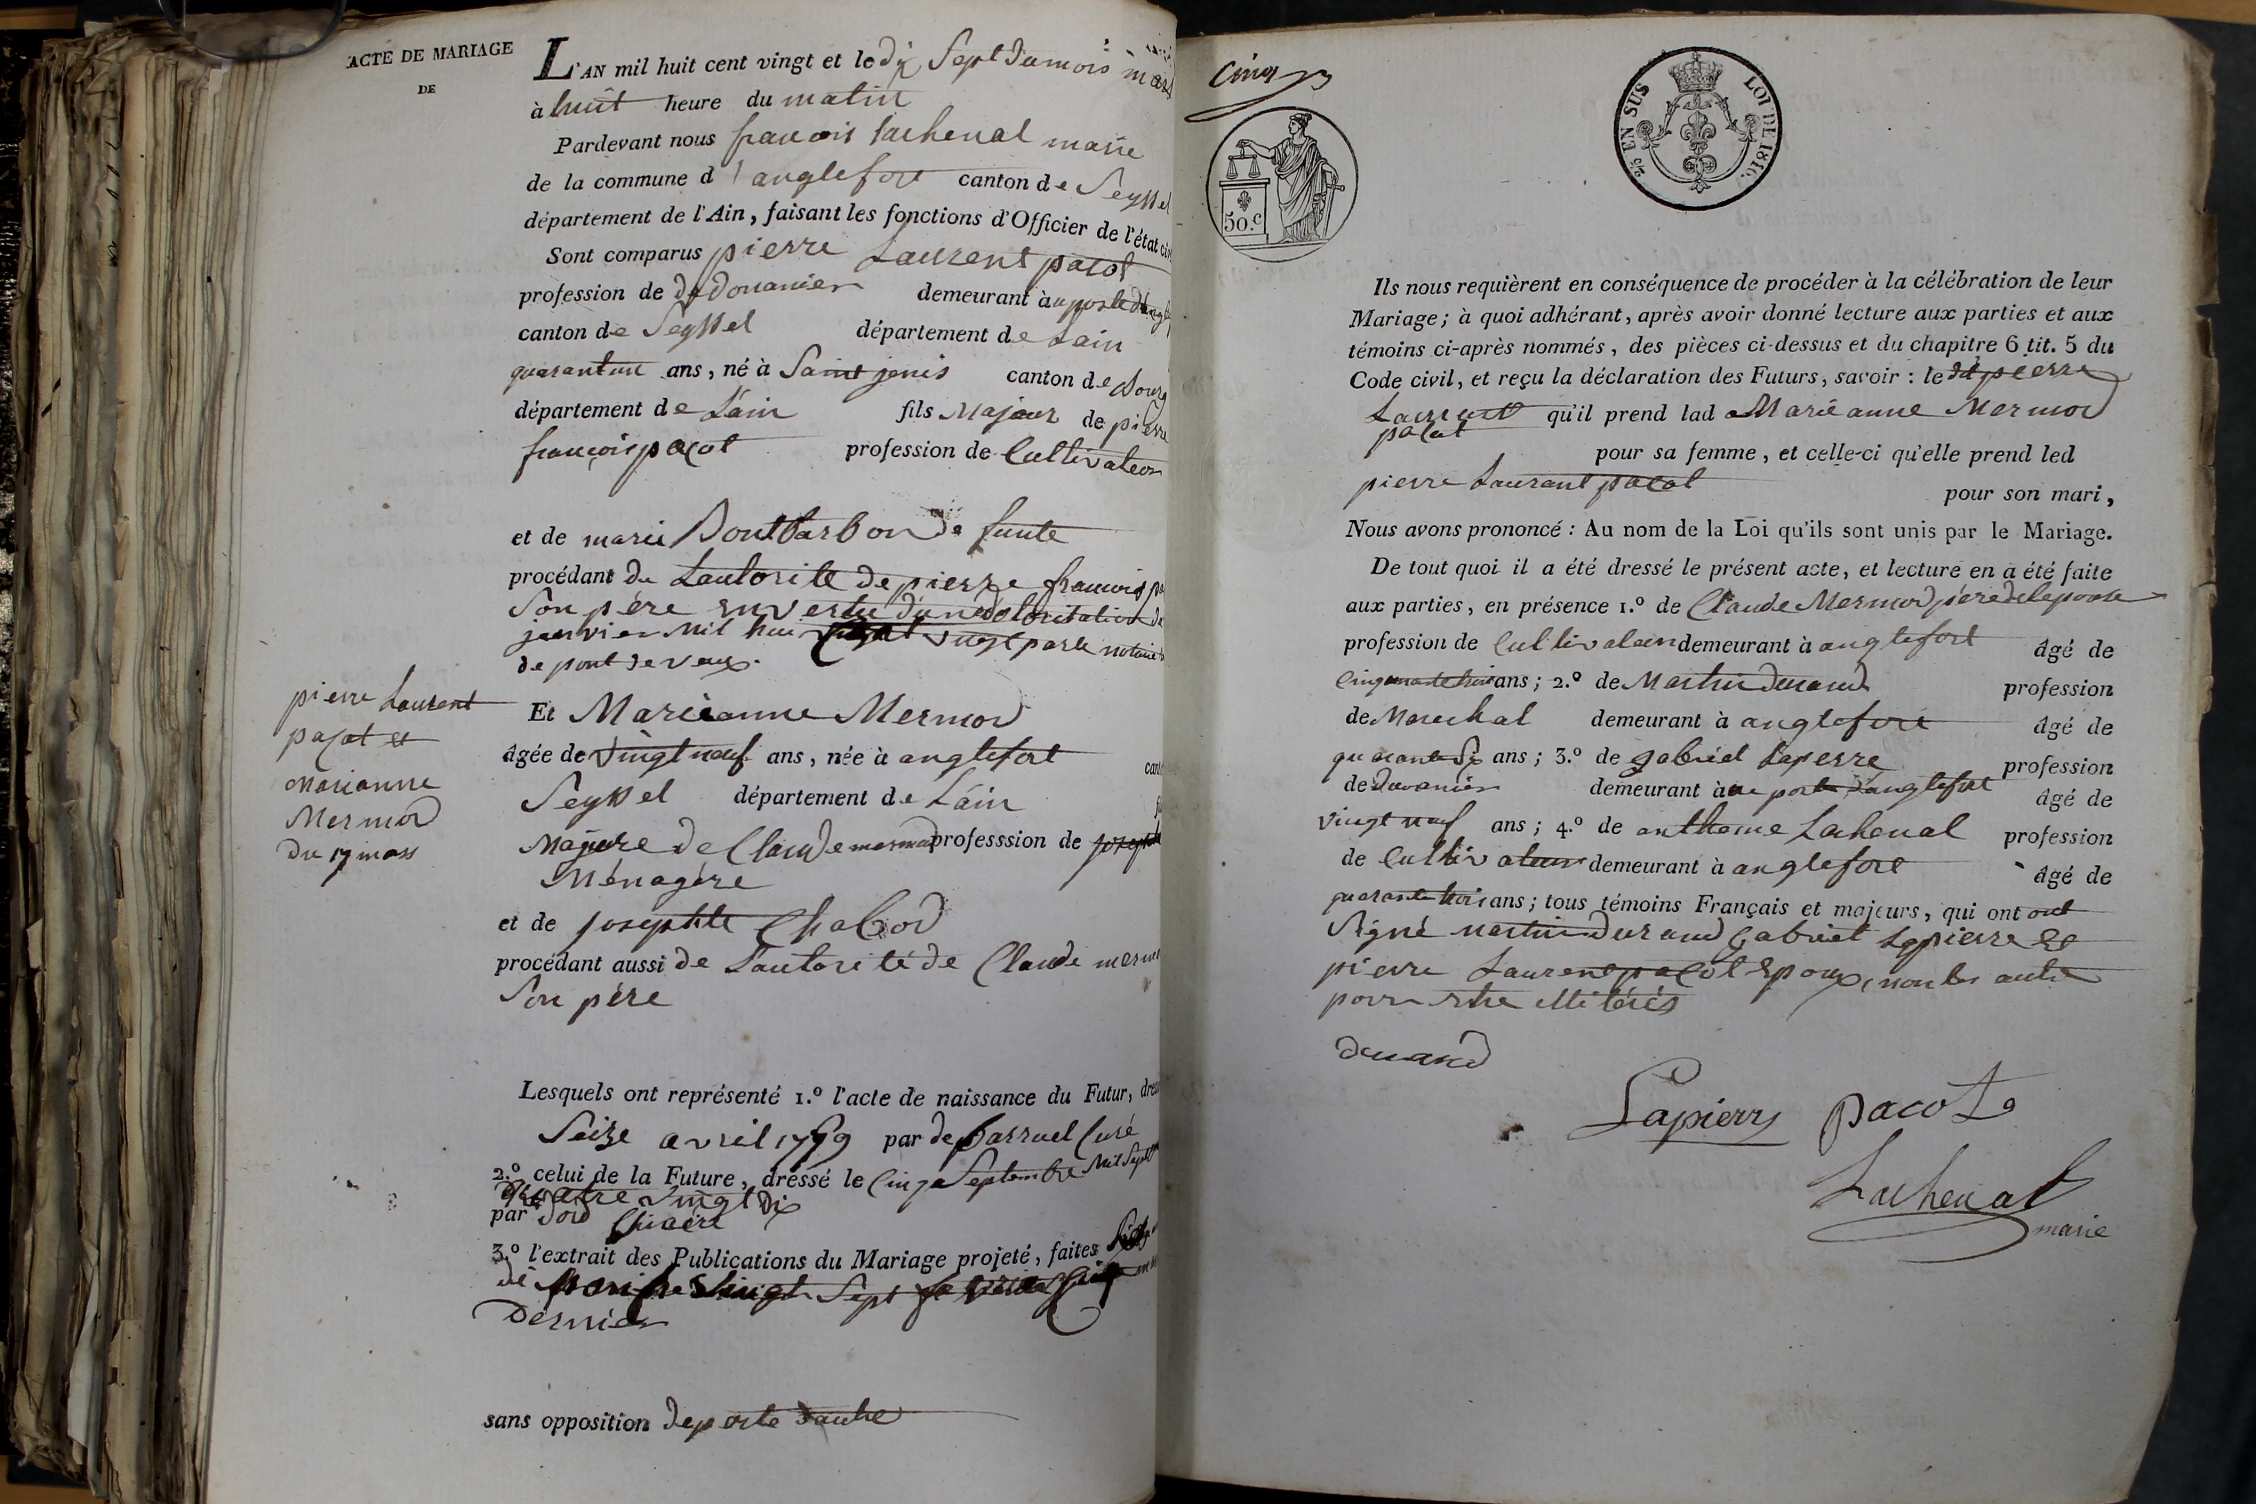 ACTE DE MARIAGE
DE
L'AN mil huit cent vingt et le dix Sept du mois mars
à huit heure du matin
Pardevant nous francois Lachenal maire
de la commune d'anglefort canton de Seyssel
département de l'Ain, faisant les fonctions d'Officier de l'état civ
Sont comparus pierre Laurent pacot
profession de de douanier demeurant à au poste d'anglefort
canton de Seyssel département de Lain
quarantun ans, né à Saint jenis canton de Bourg
département de L'ain fils Majeur de pierre
françois pacot profession de Cultivateur
et de marie Bontbarbon defunte
procédant de Lautorité de pierre francois pa
Son père en vertu d'un
janvier mil hui vingt par le notaire
de pont de veaux.
pierre Laurent
paçot et
Marianne
Mermod
Du 17 mars
Et Mariéanne Mermod
âgée de Vingt neuf ans, née à anglefort cant
Seyssel département de L'ain
Majeure de Claude mermod professsion de
Ménagére
et de josephte Chabod
procédant aussi de L'autorité de Claude merm
Son père
Lesquels ont représenté 1.º l'acte de naissance du Futur, dres
Seize avril 1779 par de Barruel Curé
2.º celui de la Future, dressé le Cinq Septembre Mil Sept
quatre vingt dix
par
3.º l'extrait des Publications du Mariage projeté, faites
de Vingt Sept
Dernier
sans opposition de porte d'autre
Cinq
50.c
2/5 EN SUS LOI DE 1816.
Ils nous requièrent en conséquence de procéder à la célébration de leur
Mariage; à quoi adhérant, après avoir donné lecture aux parties et aux
témoins ci-après nommés, des pièces ci-dessus et du chapitre 6 tit. 5 du
Code civil, et reçu la déclaration des Futurs, savoir : le dd pierre
Laurent qu'il prend lad Marièanne Mermod
pacot
pour sa femme, et celle-ci qu'elle prend led
pierre Laurant pacot pour son mari,
Nous avons prononcé : Au nom de la Loi qu'ils sont unis par le Mariage.
De tout quoi il a été dressé le présent acte, et lecture en a été faite
aux parties, en présence 1.º de Claude Mermod père de lepouse
profession de Cultivateur demeurant à anglefort âgé de
Cinquante trois ans; 2.º de Martin durand profession
de Marechal demeurant à anglefort âgé de
quarante Six ans; 3.º de gabriel Lapierre profession
de Douanier demeurant à au poste d'anglefort âgé de
vingt neuf ans; 4.º de antheme Lachenal profession
de Cultivateur demeurant à anglefort âgé de
quarante trois ans; tous témoins Français et majeurs, qui ont ont
Signé martin Durand Gabriel Lapierre et
pierre Laurent pacot Epoux, non les autre
pour etre illitérés
durand
Lapierre pacot
Lachenal
marie